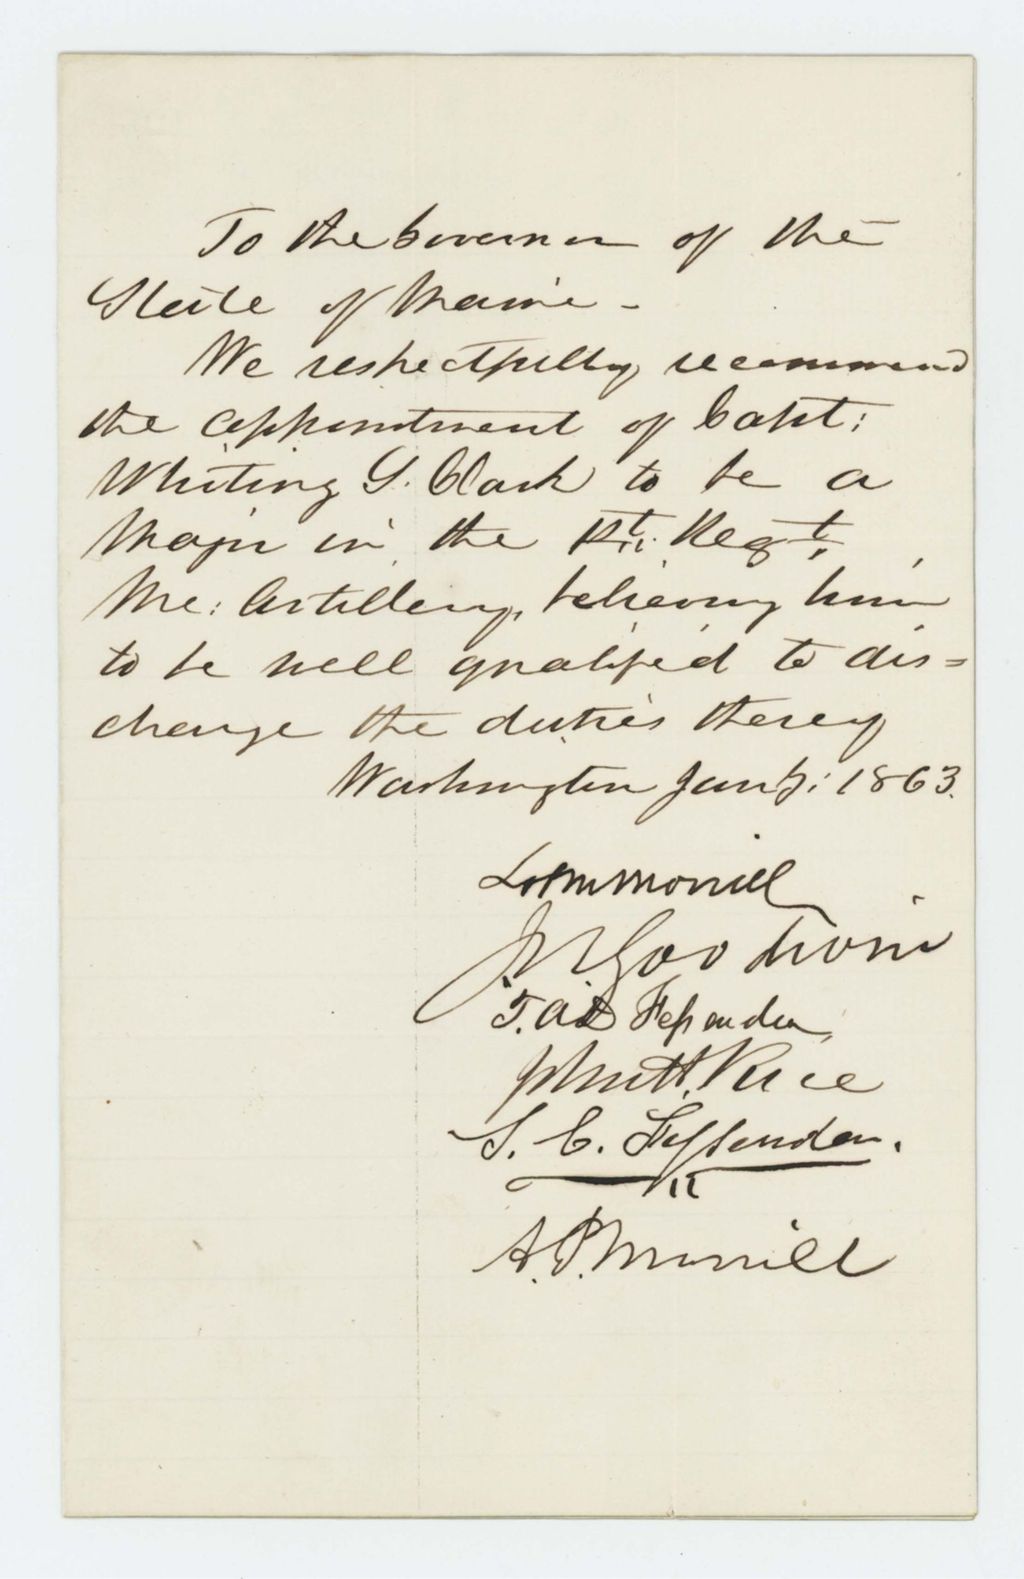 To the Governor of the
State of Maine -
We respectfully recommend
the appointment of Capt:
Whiting S. Clark to be a
Major in the Rt. Regt.
Me: Artillery, believing him
to be well qualified to dis=
charge the duties thereof
Washington Jany: 1863.
Lot M Morrill
J N Goodwin
T. A. D. Fessenden
John H. Rice
S. C. Fessenden.
A. P. Morrill